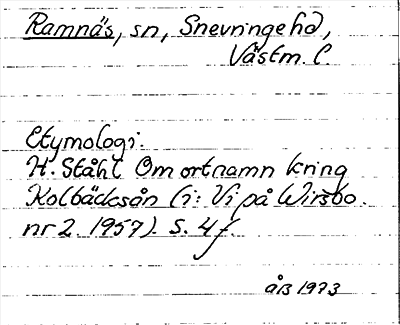 Ramnäs, sn, Snevringe hd,
Västm. l.
Etymologi:
H. Ståhl Om ortnamn kring
Kolbäcksån (i: Vi på Wirsbo.
nr 2 1957). S. 4 f.
åB 1973